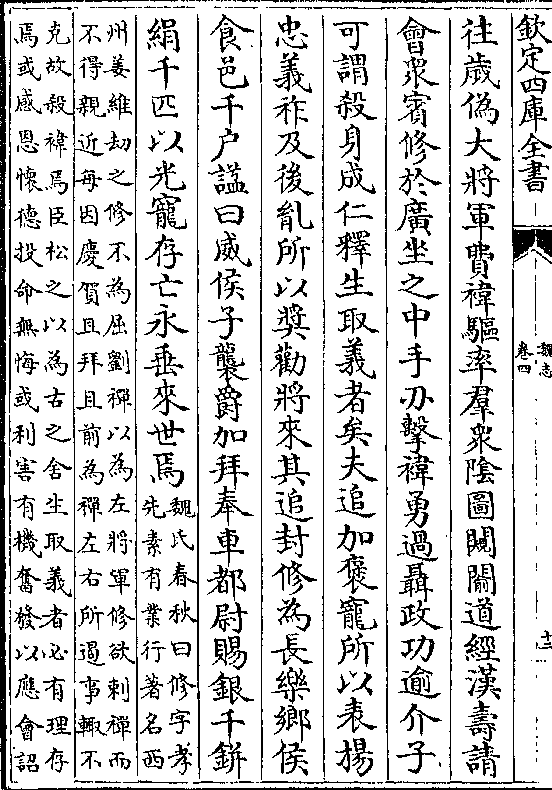 欽定四庫全書
魏志
卷四
十二
往歲偽大將軍費禕驅率羣眾陰圖闚𨵦道經漢壽請
會眾賓修於廣坐之中手刃擊禕勇過聶政功逾介子
可謂殺身成仁釋生取義者矣夫追加褒寵所以表揚
忠義祚及後胤所以奬勸將來其追封修為長樂鄉侯
食邑千户諡曰威侯子襲爵加拜奉車都尉賜銀千鉼
絹千匹以光寵存亡永垂來世焉
魏氏春秋曰修字孝
先素有業行著名西
州姜維劫之修不為屈劉禪以為左將軍修欲刺禪而
不得親近每因慶賀且拜且前為禪左右所遏事輒不
克故殺禕焉臣松之以為古之舍生取義者必有理存
焉或感恩懷德投命無悔或利害有機奮發以應會詔